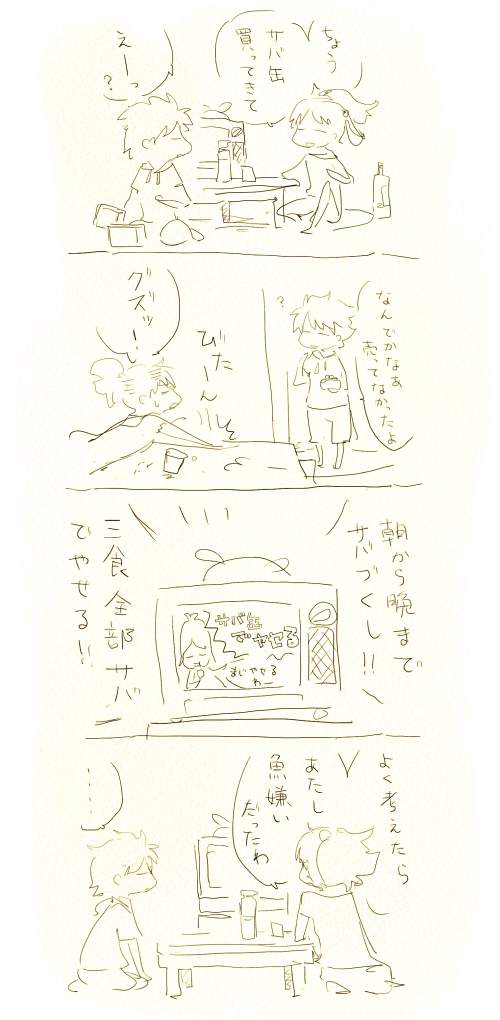 ちょう
サバ缶
買ってきて
えーっ
?
なんでかなぁ
売ってなかったよ
?
びたーん!!
グズッ!
朝から晩まで
サバづくし!!
サバ缶
でやせる
まじやせる
わー
三食全部サバ
でやせる!!
よく考えたら
あたし
魚嫌い
だったわ
.....